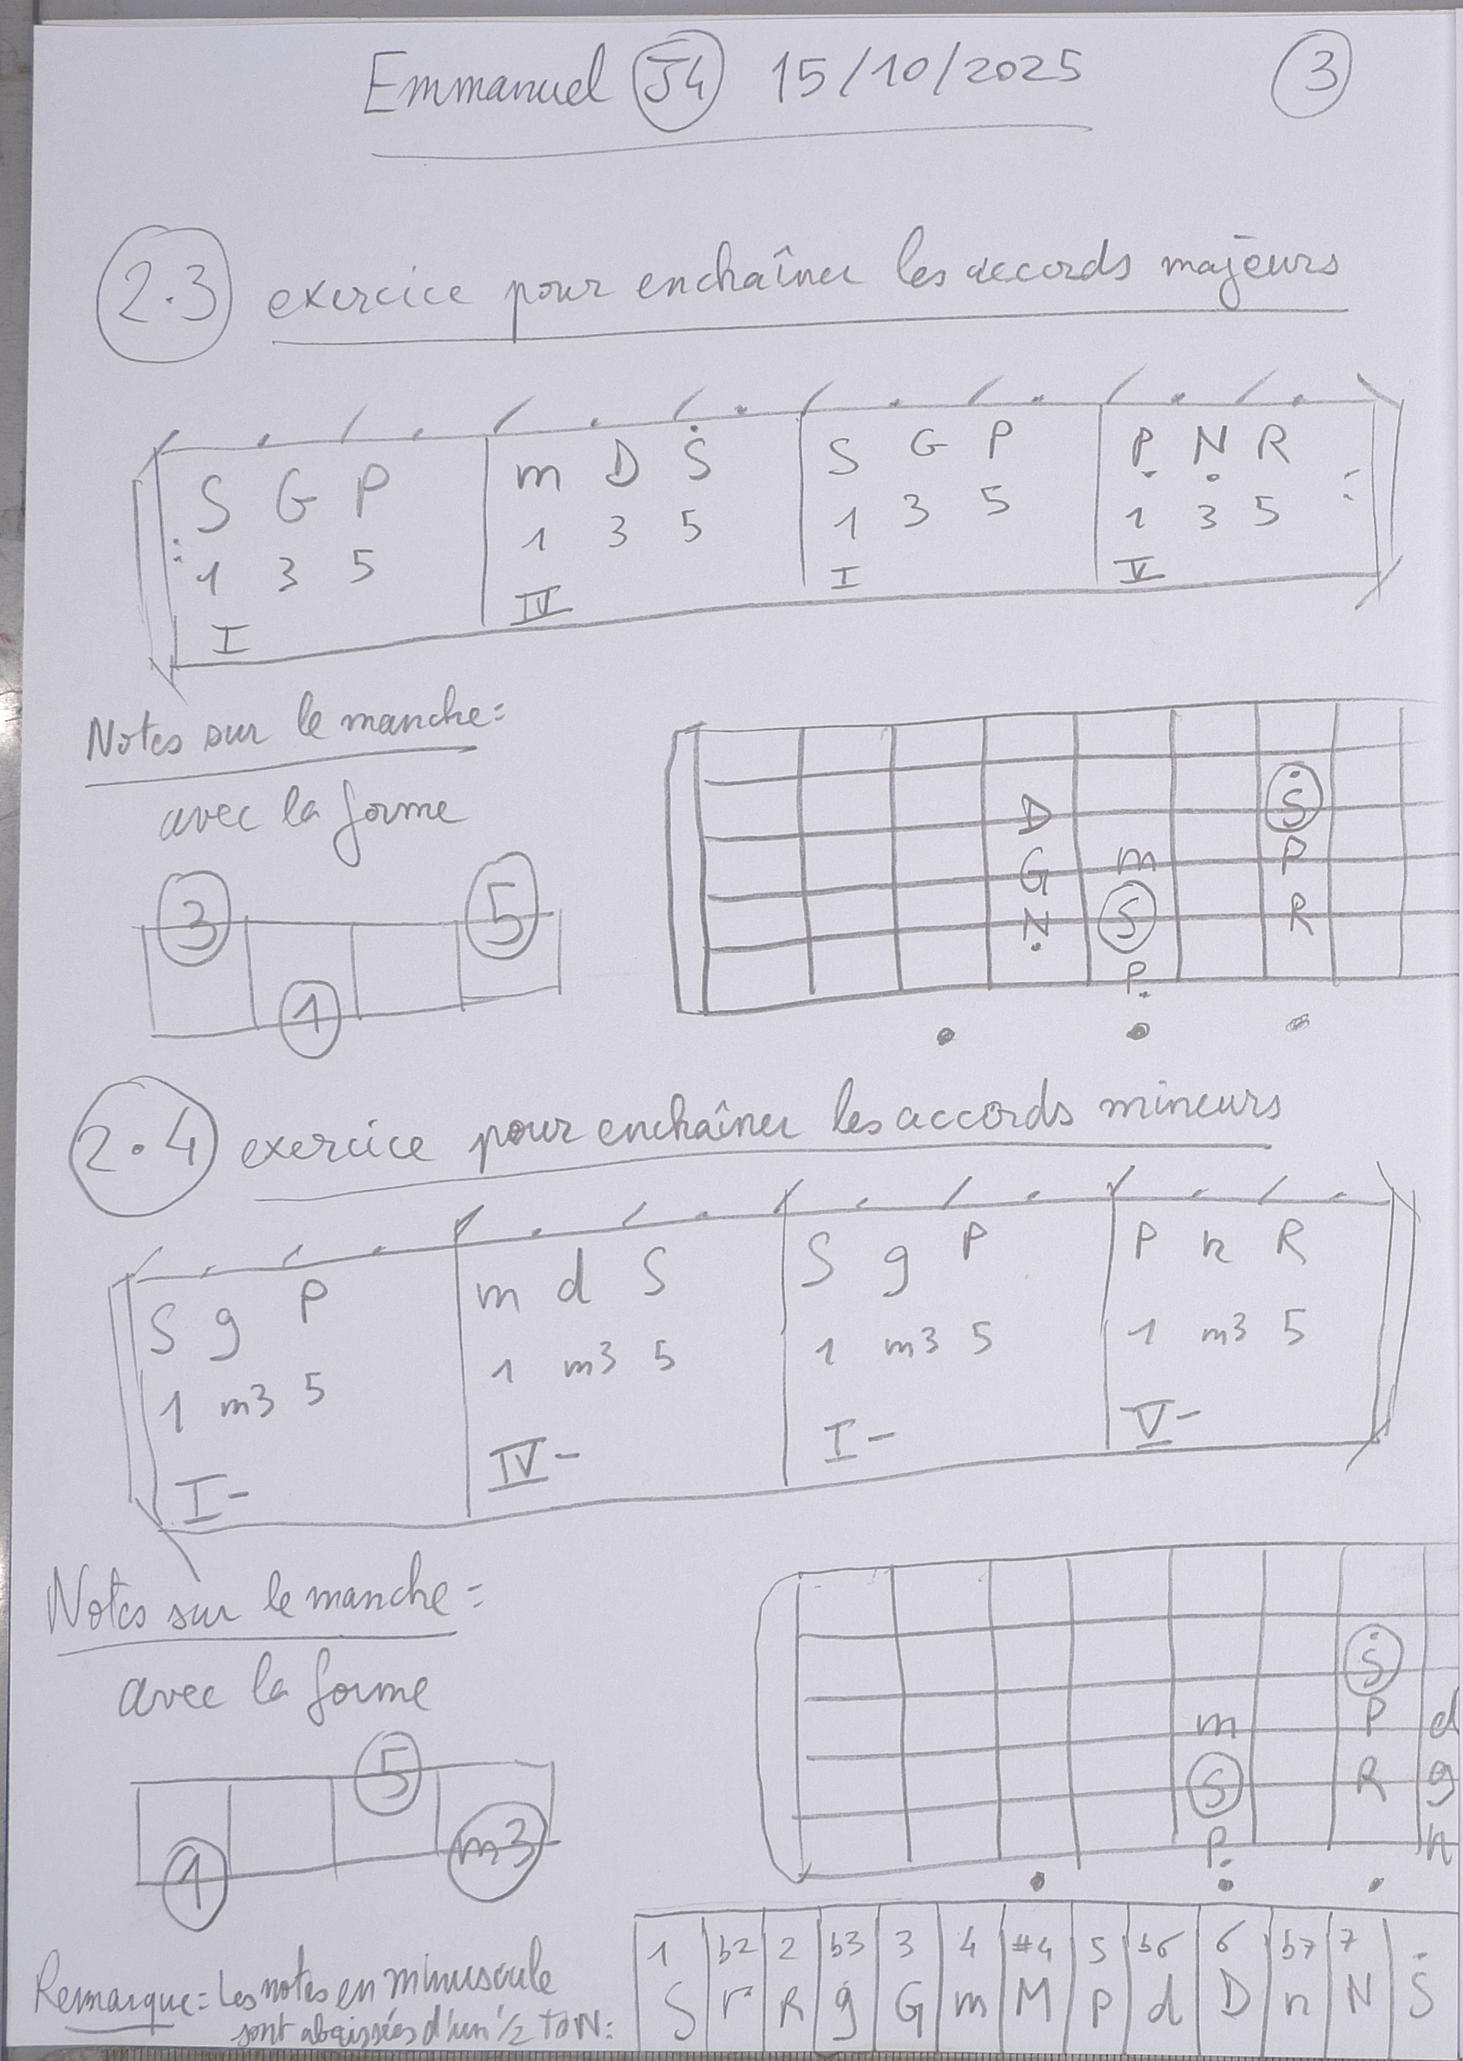 Emmanuel J4 15/10/2025 3
2.3 exercice pour enchaîner les accords majeurs
S G P m D Ṡ S G P P̣ Ṇ R
1 3 5 1 3 5 1 3 5 1 3 5
I IV I V
Notes sur le manche:
avec la forme
3 5
1
D Ṡ
G m P
Ṇ S R
P̣
2.4 exercice pour enchaîner les accords mineurs
S g P m d S S g P P n R
1 m3 5 1 m3 5 1 m3 5 1 m3 5
I- IV- I- V-
Notes sur le manche:
avec la forme
5
1 m3
Ṡ
m P d
S R g
P̣ n
Remarque: Les notes en minuscule
sont abaissées d'un 1/2 TON:
1 b2 2 b3 3 4 #4 5 b6 6 b7 7
S r R g G m M P d D n N Ṡ